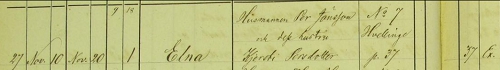 9 18
Husmannen Per Jönsson No 7
och dess hustru Hvellinge
27 Nov. 10 Nov. 20 1 Elna Kjersti Persdotter p. 37 37